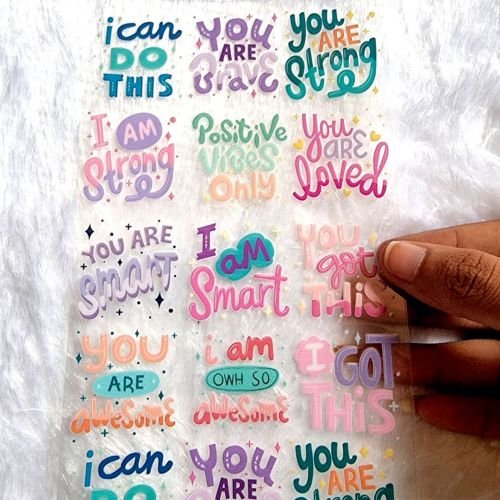 i can
DO
THIS
YOU
ARE
BRAVE
you
ARE
Strong
I AM
Strong
Positive
vibes
only
You
ARE
loved
YOU ARE
smart
I
aM
Smart
YOU
got
THIS
YOU
ARE
aWeSoMe
i am
OWH SO
aWeSoMe
I GOT
THIS
i can
DO
YOU
ARE
you
ARE